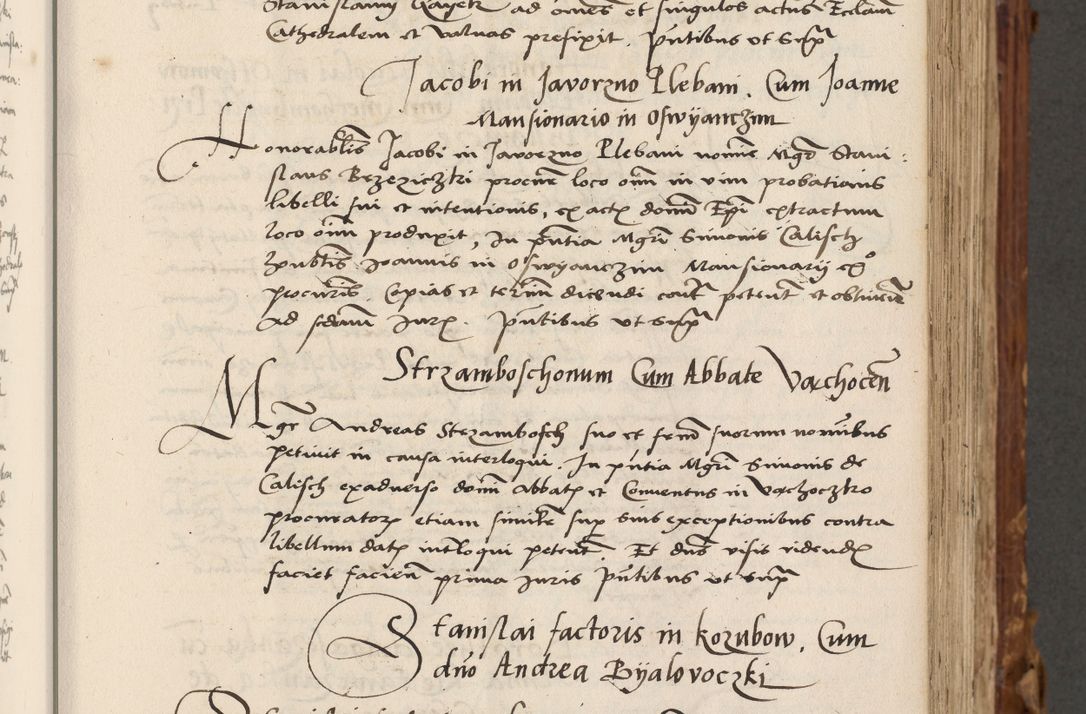 Stanislaum Gayek ad omnes et singulos actus Ecclam
Cathedralem et valuas prefixit. Pntibus ut supr
Jacobi in Javorzno Plebani. Cum Joanne
Mansionario in Oswyanczim
Honorablis Jacobi in Javorzno Plebani nomine Mgr Stani:
slaus Brzeziczki procur loco omni in vim probationis
libelli sui et intentionis, ex actr domini Epi extractum
loco omni produxit, In pntia Mgri Simonis Calisch
Joannis in Oswyanczim Mansionarii exo
procuris. Copias et termi dicendi contr petent et obtinen
ad scdam Jurr. Pntibus ut supr
Strzamboschonum Cum Abbate Vachocen
Mgr Andreas Strzambosch suo et frum suorum nominibus
petiuit in causa interloqui. In pntia Mgri Simonis de
Calisch exaduerso domini Abbatr et Conuentus in Vachoczko
procurator etiam simile sup suis exceptionibus contra
libellum datr intloqui petent. Et dns visis videndr
faciet facien prima Juris Pntibus ut supr
Stanislai factoris in Kozubow. Cum
dno Andrea Byalovoczki